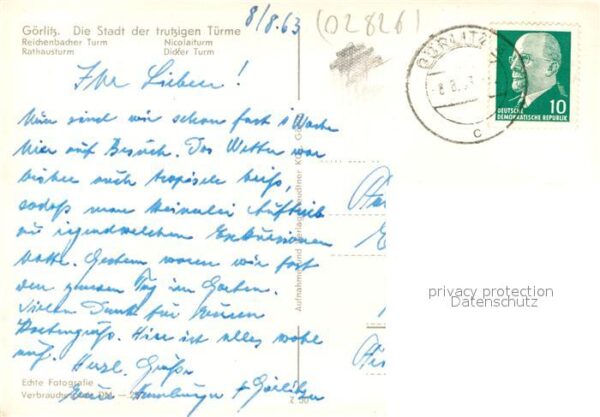 8/8.63
(02826)
Görlitz. Die Stadt der trutzigen Türme
Reichenbacher Turm Nicolaiturm
Rathausturm Dicker Turm
GÖRLITZ
-8.8.63
c
10
DEUTSCHE
DEMOKRATISCHE REPUBLIK
Ihr Lieben!
Nun sind wir schon fast 1 Woche
hier auf Besuch. Das Wetter war
bisher auch tropisch heiß,
sodaß man keinerlei Auftrieb
zu irgendwelchen Exkursionen
hatte. Gestern waren wir fast
den ganzen Tag im Garten.
Vielen Dank für Euren
Kartengruß. Hier ist alles wohl
auf. Herzl. Grüße
Eure Hamburger + Görlitzer
Echte Fotografie
Verbraucher DM
Aufnahme und Verlag
privacy protection
Datenschutz